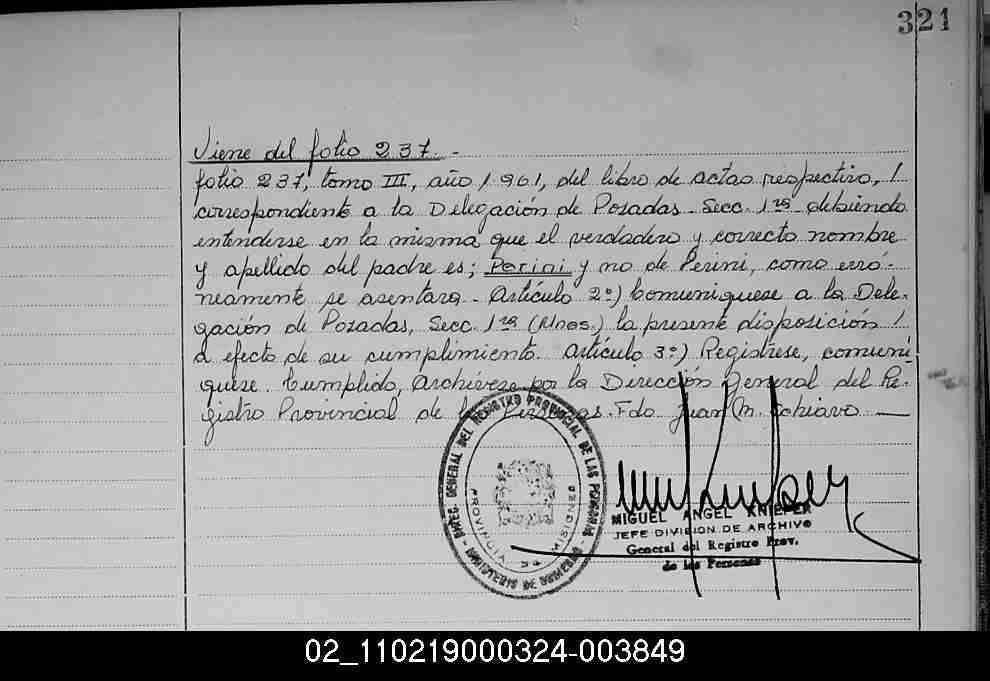 321
Viene del folio 237.-
folio 237, tomo III, año 1961, del libro de actas respectivo, /
correspondiente a la Delegación de Posadas. Secc. 1ra debiendo
entenderse en la misma que el verdadero y correcto nombre
y apellido del padre es; Perini y no de Perini, como erró-
neamente se asentara. Artículo 2º) Comuníquese a la Dele-
gación de Posadas, Secc. 1ra (Mnes.) la presente disposición /
a efecto de su cumplimiento. Artículo 3º) Regístrese, comuní
quese. Cumplido, Archívese por la Dirección General del Re-
gistro Provincial de las Personas. Fdo Juan M.
DIREC. GENERAL DEL REGISTRO PROVINCIAL DE LAS PERSONAS
PROVINCIA DE MISIONES
MIGUEL ANGEL KNIEPER
JEFE DIVISION DE ARCHIVO
General del Registro Prov.
de las Personas
02_110219000324-003849